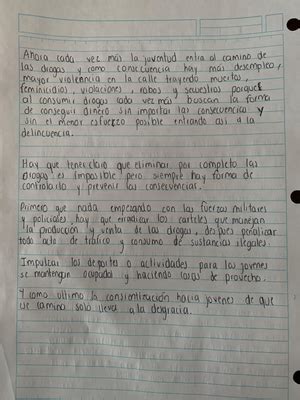 Ahora cada vez más la juventud entra al camino de
las drogas y como consecuencia hay más desempleo,
mayor violencia en la calle trayendo muertos,
feminicidios, violaciones, robos y secuestros porque
al consumir drogas cada vez más buscan la forma
de conseguir dinero sin importar las consecuencias y
sin el menor esfuerzo posible entrando así a la
delincuencia.
Hay que tener claro que eliminar por completo las
drogas es imposible pero siempre hay forma de
controlarlo y prevenir las consecuencias.
Primero que nada empezando con las fuerzas militares
y policiales, hay que erradicar los carteles que manejan
la producción y venta de las drogas, despues penalizar
todo acto de tráfico y consumo de sustancias ilegales.
Impulsar los deportes o actividades para los jovenes
se mantengan ocupados y haciendo cosas de provecho.
Y como ultimo la concientización hacia jovenes de que
ese camino solo lleva a la desgracia.